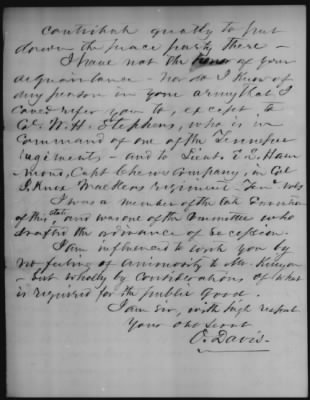 contribute greatly to put
down the peace party there —
I have not the honor of your
acquaintance — nor do I know of
any person in your army that I
could refer you to, except to
Col. W. H. Stephens, who is in
command of one of the Tennessee
regiments — and to Lieut.
Capt Company, in Col
J. Knox Walkers regiment. Ten vols
I was a member of the late Convention
of this state, and was one of the Committee who
drafted the ordinance of secession.
I am influenced to write you by
no feeling of animosity to Mr.
— but wholly by considerations of what
is required for the public good.
I am sir, with high respect
Your obt Servt
O. Davis.